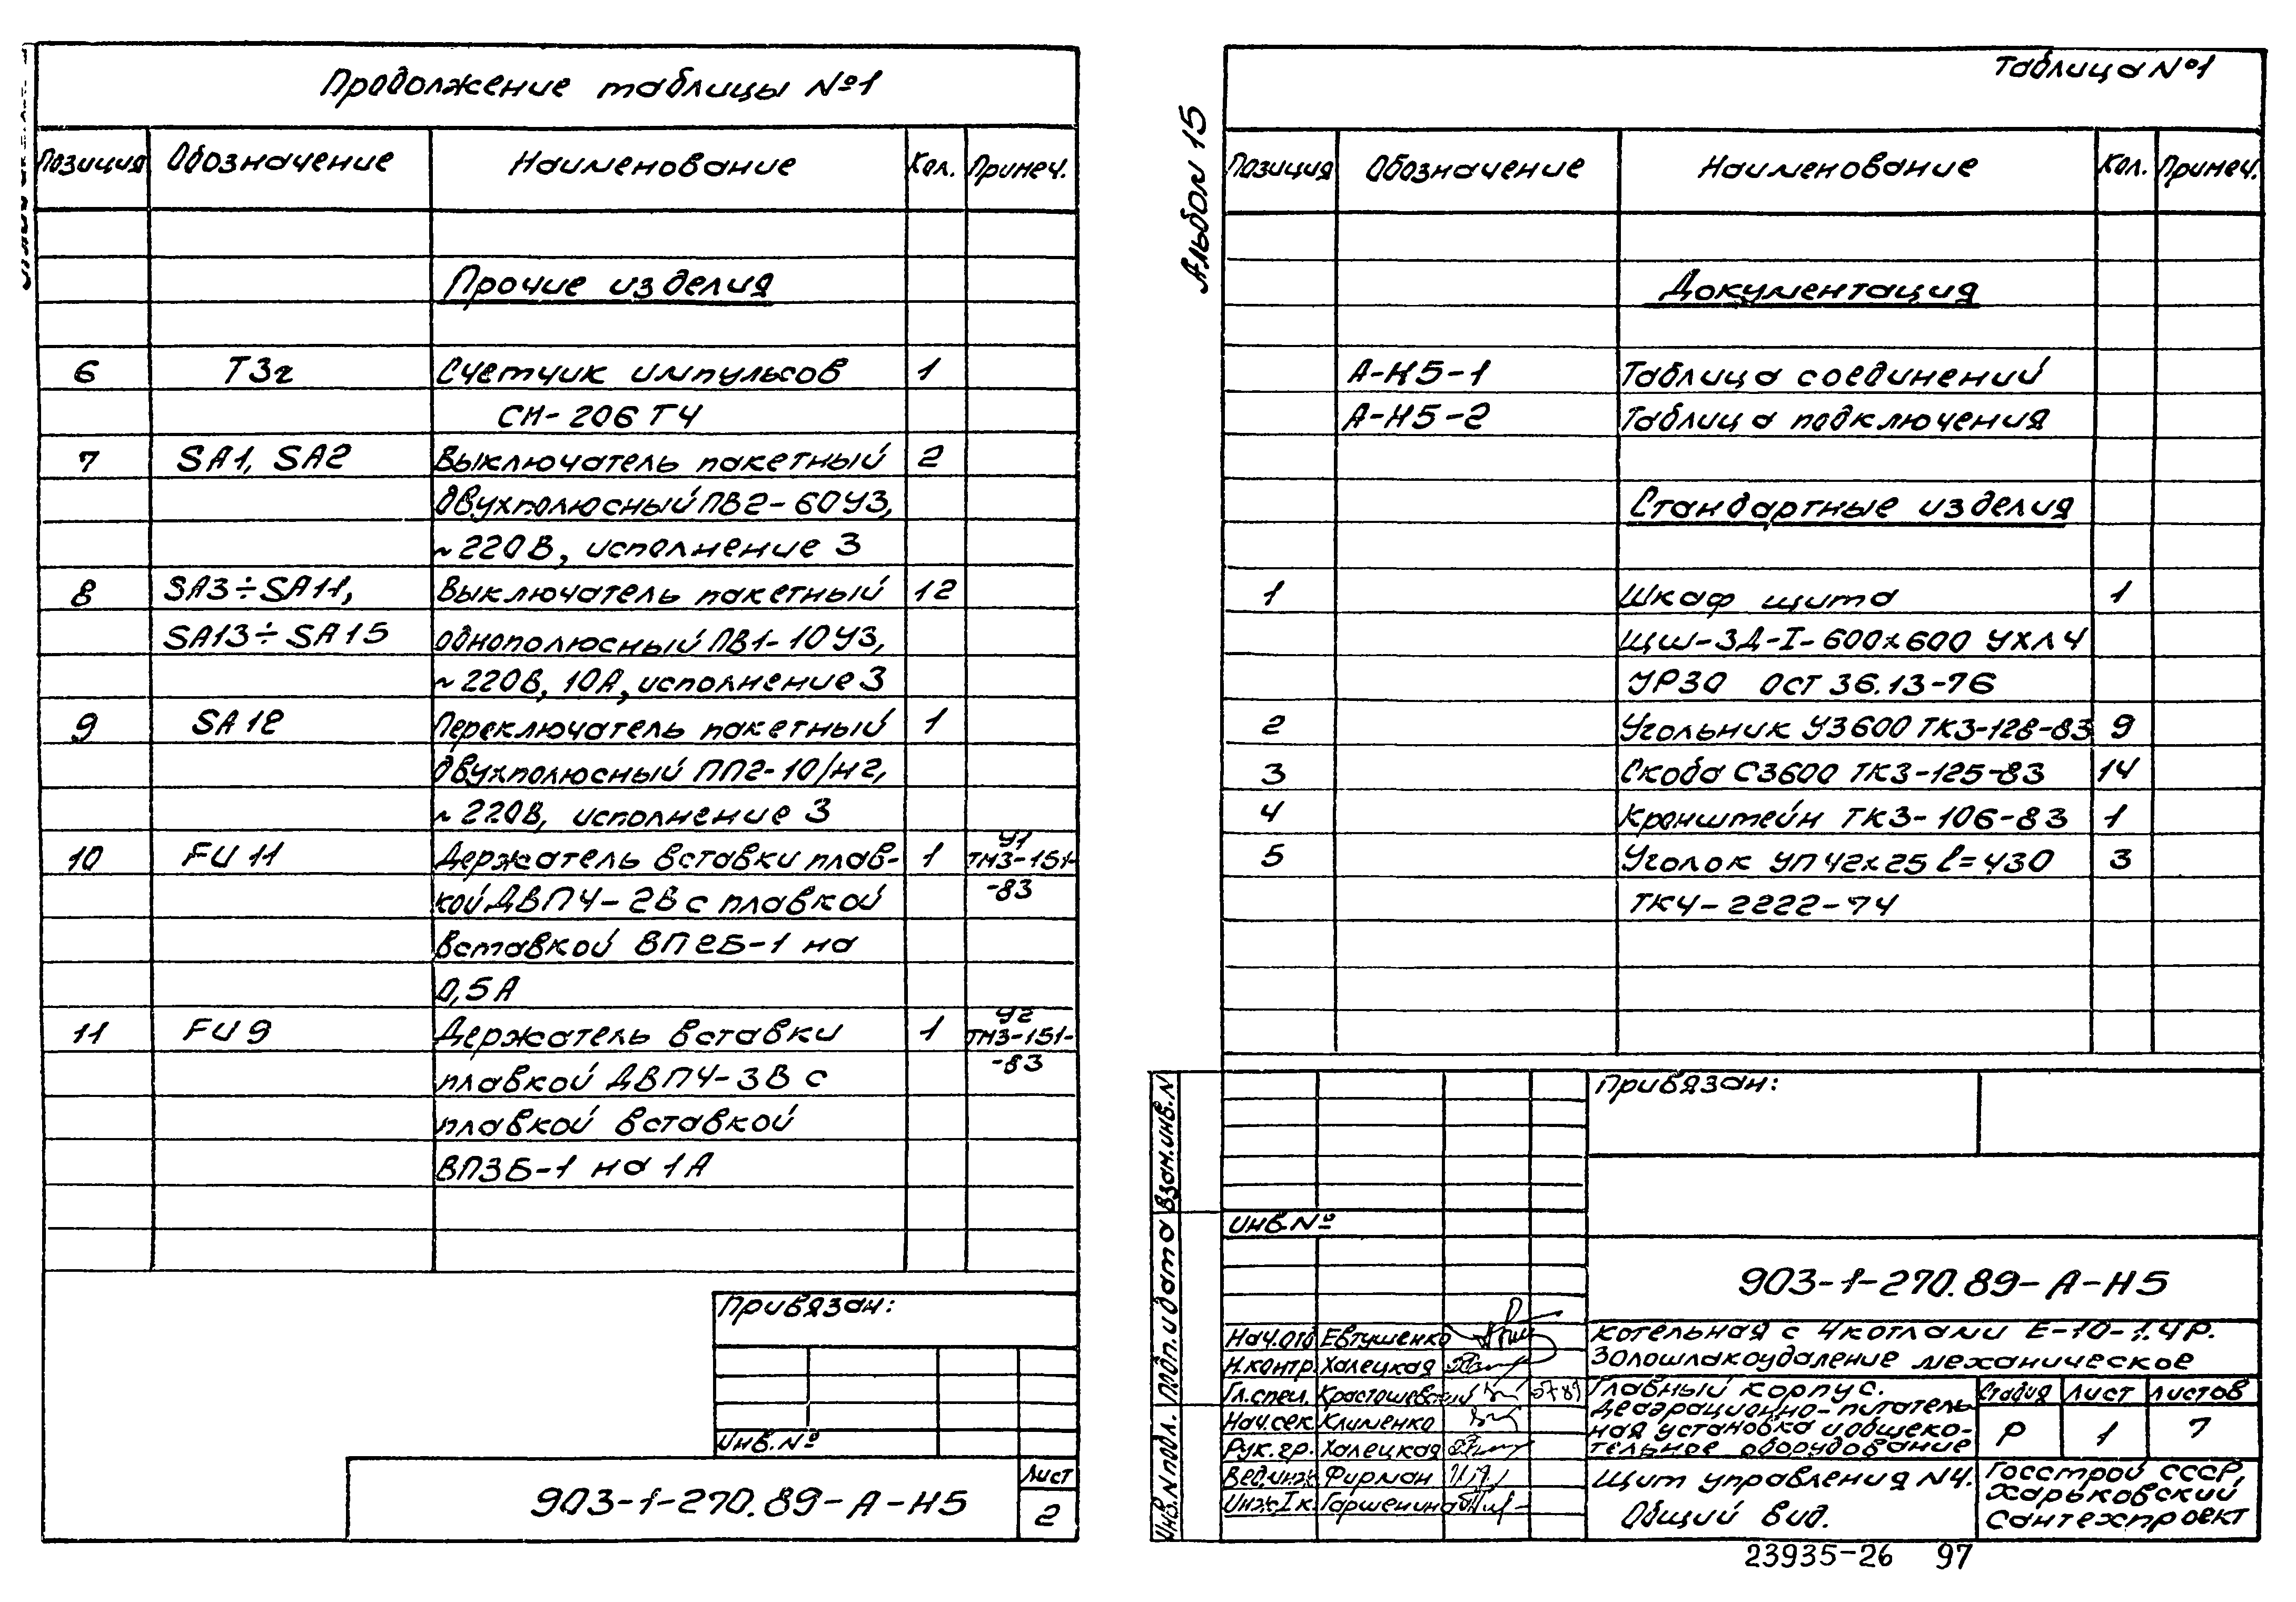 Продолжение таблицы №1
Позиция Обозначение Наименование Кол. Примеч.
Прочие изделия
6 Т3г Счетчик импульсов 1
СИ-206 ТЧ
7 SA1, SA2 Выключатель пакетный 2
двухполюсный ПВ2-60У3,
~220В, исполнение 3
8 SA3÷SA11, Выключатель пакетный 12
SA13÷SA15 однополюсный ПВ1-10У3,
~220В, 10А, исполнение 3
9 SA12 Переключатель пакетный 1
двухполюсный ПП2-10/Н2,
~220В, исполнение 3
10 FU11 Держатель вставки плав- 1 У1 ТМ3-151-
кой ДВП4-2В с плавкой -83
вставкой ВП2Б-1 на
0,5А
11 FU9 Держатель вставки 1 У2 ТМ3-151-
плавкой ДВП4-3В с -83
плавкой вставкой
ВП3Б-1 на 1А
Привязан:
Инв.№
903-1-270.89-А-Н5
Лист
2
Альбом 15
Таблица №1
Позиция Обозначение Наименование Кол. Примеч.
Документация
А-Н5-1 Таблица соединений
А-Н5-2 Таблица подключения
Стандартные изделия
1 Шкаф щита 1
ЩШ-ЗД-I-600х600 УХЛ4
УР30 ОСТ 36.13-76
2 Угольник У3600 ТК3-128-83 9
3 Скоба С3600 ТК3-125-83 14
4 Кронштейн ТК3-106-83 1
5 Уголок УП 42х25 l=430 3
ТК4-2222-74
Привязан:
Инв.№
Взам.инв.N
Подп. и дата
Инв.N подл.
903-1-270.89-А-Н5
Нач.отд Евтушенко
Н.контр. Халецкая
Гл.спец. Красташевский
Нач.сек. Клименко
Рук.гр. Халецкая
Вед.инж. Фирман
Инж.I к. Гаршенина
Котельная с 4 котлами Е-10-1.4Р.
Золошлакоудаление механическое
Главный корпус.
Деаэрационно-питатель
ная установка и общеко-
тельное оборудование
Стадия Лист Листов
Р 1 7
Щит управления N4.
Общий вид.
Госстрой СССР,
Харьковский
Сантехпроект
23935-26 97